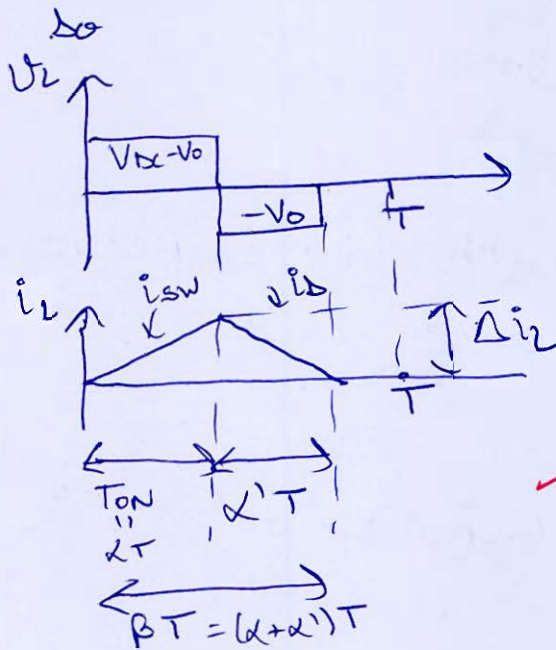 V_L
V_DC-V_O
-V_O
T
i_L
i_SW
i_D
Δi_L
T
T_ON
"
αT
α'T
βT = (α+α')T